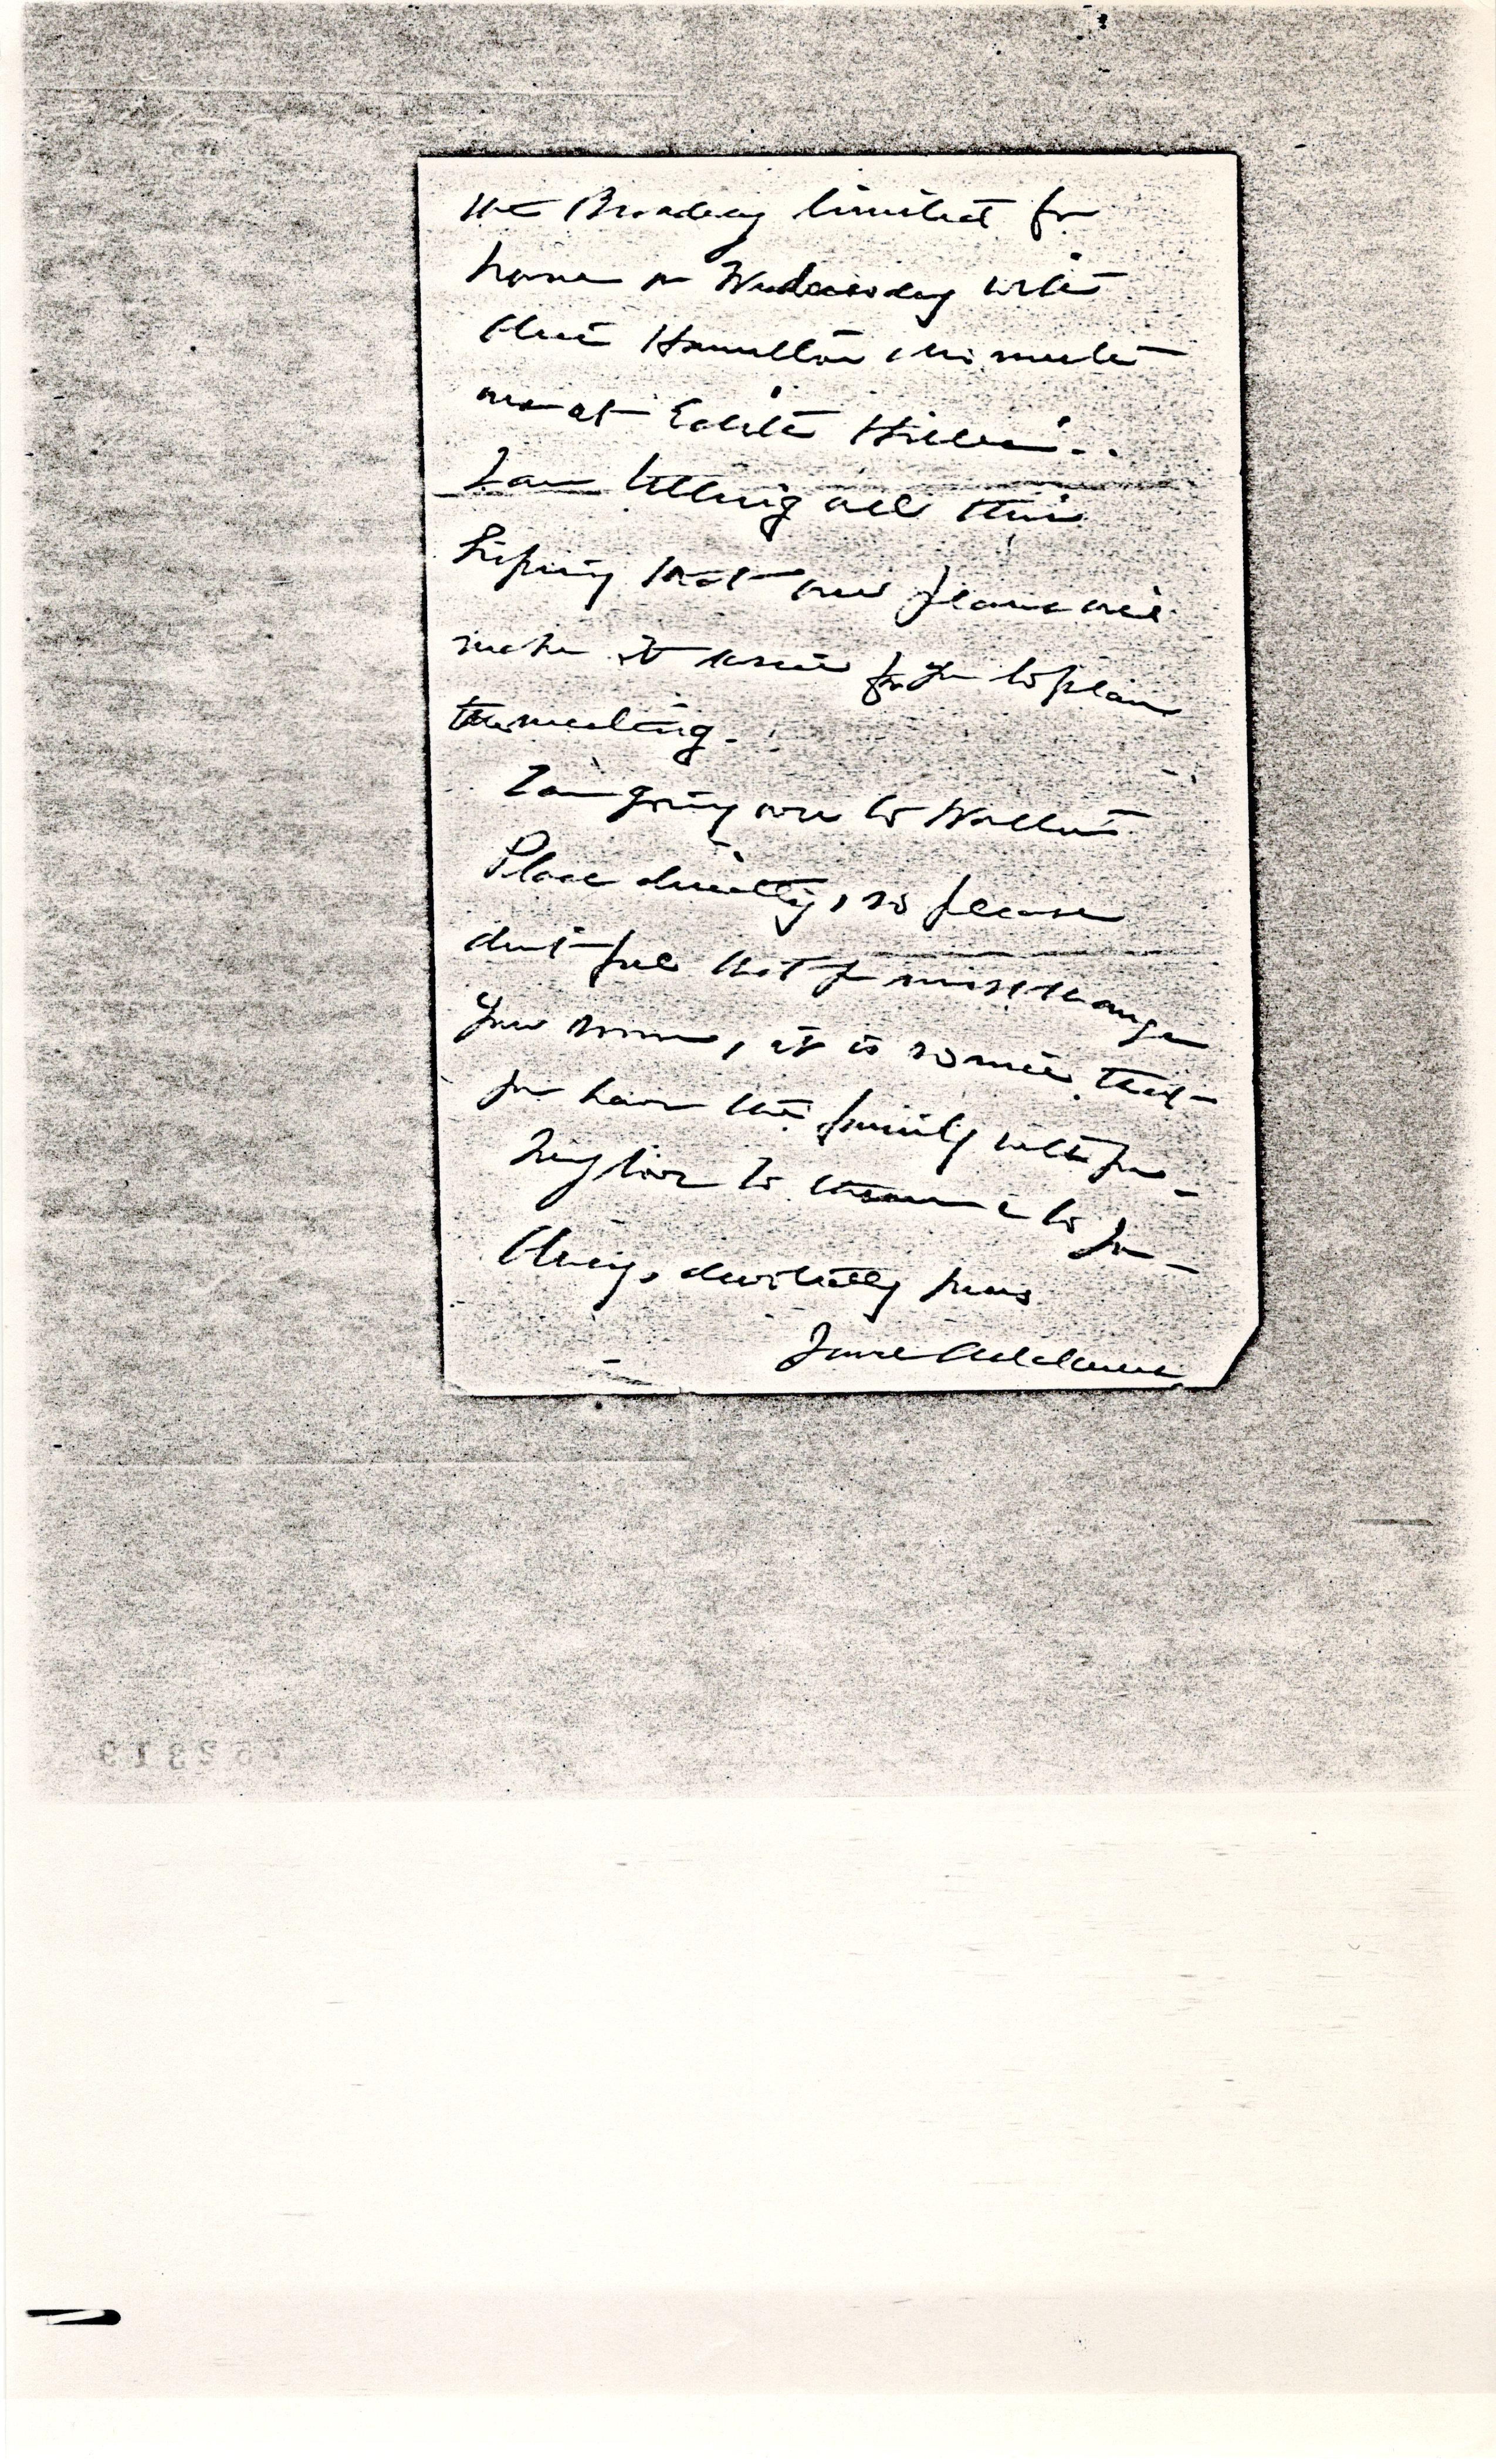 the Broadway limited for
home on Wednesday with
Alice Hamilton who meets
me at Edith Hilles'..
I am telling all this
hoping that our plans will
make it easier for you to plan
the meeting.
I am going over to Walnut
Place directly, so please
don't feel that you must change
your room, it is so nice that
you have the family with you -
My love to them & to you -
Always devotedly yours
Jane Addams